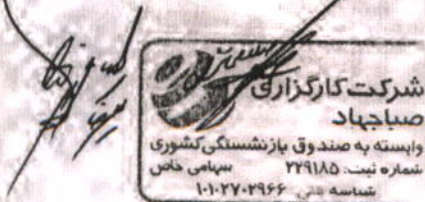 شرکت کارگزاری
صباجهاد
وابسته به صندوق بازنشستگی کشوری
شماره ثبت: ۲۲۹۱۸۵ سهامی خاص
شناسه ملی: ۱۰۱۰۲۷۰۲۹۶۶